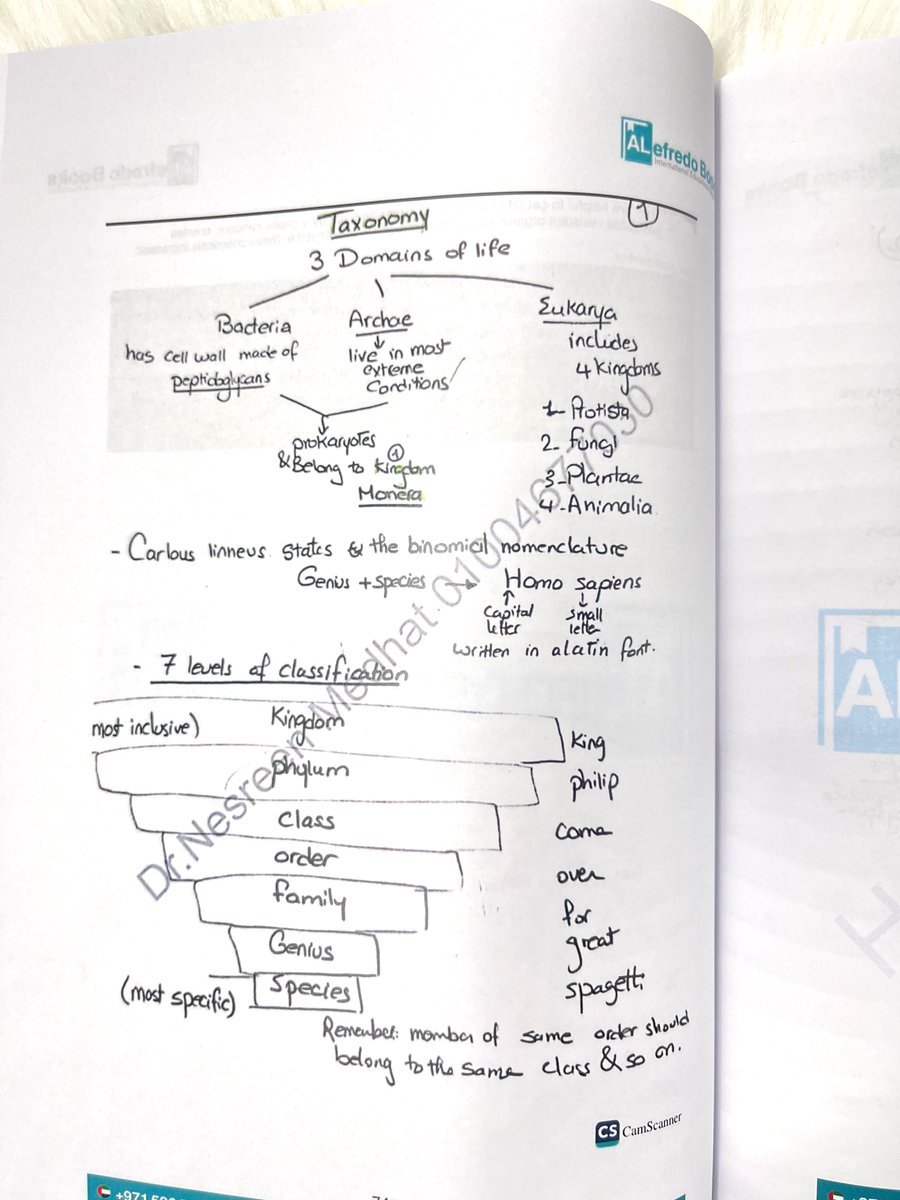 ALefredo Boo
International Educa
1
Taxonomy
3 Domains of life
Bacteria
has cell wall made of
peptidoglycans
Archae
live in most
extreme
conditions
Eukarya
includes
4 Kingdoms
1- Protista
2- Fungi
3- Plantae
4- Animalia
prokaryotes
& Belong to kingdom
1
Monera
- Carlous linneus states & the binomical nomenclature
Genius + species → Homo sapiens
Capital
letter
small
lette
written in a latin font.
- 7 levels of classification
most inclusive)
Kingdom
phylum
class
order
family
Genius
species
(most specific)
King
philip
come
over
for
great
spagetti
Remember: member of same order should
belong to the same class & so on.
Dr.Nesreen Medhat 01004677030
CS CamScanner
+971